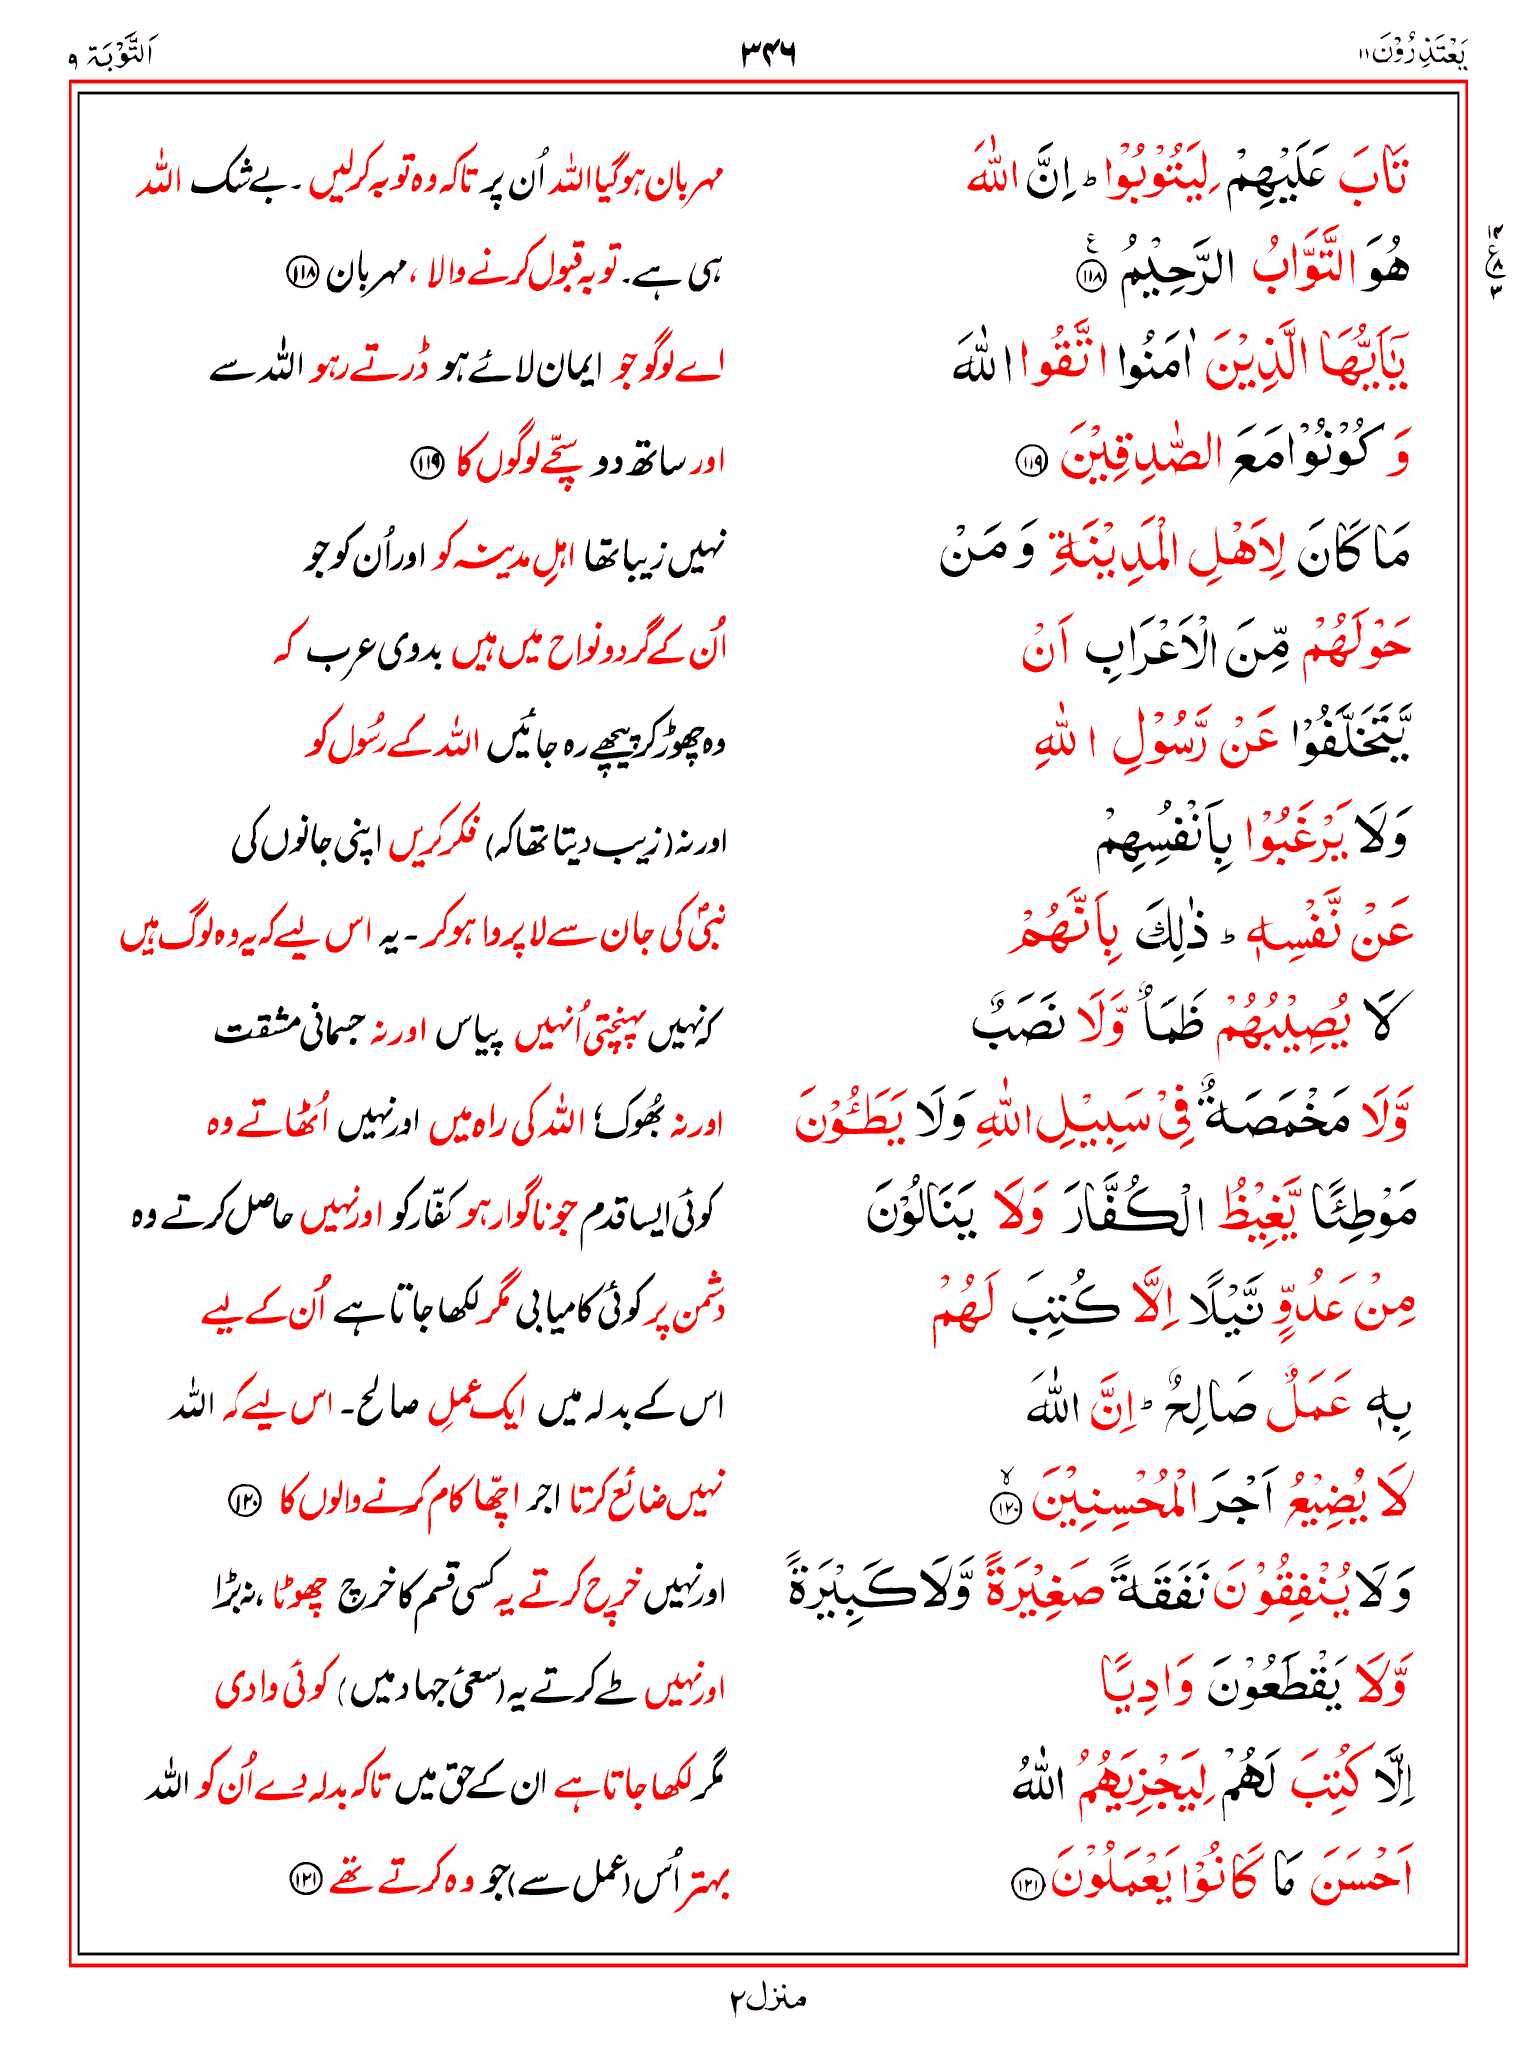 يَعْتَذِرُوْنَ ۱۱ ۳۴۶ اَلتَّوْبَة ۹
تَابَ عَلَيْهِمْ لِيَتُوْبُوْا ؕ اِنَّ اللّٰهَ مہربان ہوگیا اللہ اُن پر تاکہ وہ توبہ کرلیں ۔ بے شک اللہ
هُوَ التَّوَّابُ الرَّحِيْمُ ﴿۱۱۸﴾ ع ہی ہے۔ توبہ قبول کرنے والا ، مہربان ﴿۱۱۸﴾
۱۴ ع ۸ ۳
يٰۤاَيُّهَا الَّذِيْنَ اٰمَنُوا اتَّقُوا اللّٰهَ اے لوگو جو ایمان لائے ہو ڈرتے رہو اللہ سے
وَ كُوْنُوْا مَعَ الصّٰدِقِيْنَ ﴿۱۱۹﴾ اور ساتھ دو سچّے لوگوں کا ﴿۱۱۹﴾
مَا كَانَ لِاَهْلِ الْمَدِيْنَةِ وَ مَنْ نہیں زیبا تھا اہلِ مدینہ کو اور اُن کو جو
حَوْلَهُمْ مِّنَ الْاَعْرَابِ اَنْ اُن کے گردونواح میں ہیں بدوی عرب کہ
يَّتَخَلَّفُوْا عَنْ رَّسُوْلِ اللّٰهِ وہ چھوڑ کر پیچھے رہ جائیں اللہ کے رسُول کو
وَلَا يَرْغَبُوْا بِاَنْفُسِهِمْ اور نہ (زیب دیتا تھا کہ) فکر کریں اپنی جانوں کی
عَنْ نَّفْسِهٖ ؕ ذٰلِكَ بِاَنَّهُمْ نبیؐ کی جان سے لاپروا ہوکر ۔ یہ اس لیے کہ یہ وہ لوگ ہیں
لَا يُصِيْبُهُمْ ظَمَاٌ وَّلَا نَصَبٌ کہ نہیں پہنچتی اُنہیں پیاس اور نہ جسمانی مشقت
وَّلَا مَخْمَصَةٌ فِيْ سَبِيْلِ اللّٰهِ وَلَا يَطَـُٔوْنَ اور نہ بھُوک؛ اللہ کی راہ میں اور نہیں اُٹھاتے وہ
مَوْطِئًا يَّغِيْظُ الْكُفَّارَ وَلَا يَنَالُوْنَ کوئی ایسا قدم جو ناگوار ہو کفّار کو اور نہیں حاصل کرتے وہ
مِنْ عَدُوٍّ نَّيْلًا اِلَّا كُتِبَ لَهُمْ دشمن پر کوئی کامیابی مگر لکھا جاتا ہے اُن کے لیے
بِهٖ عَمَلٌ صَالِحٌ ؕ اِنَّ اللّٰهَ اس کے بدلہ میں ایک عملِ صالح۔ اس لیے کہ اللہ
لَا يُضِيْعُ اَجْرَ الْمُحْسِنِيْنَ ﴿۱۲۰﴾ لا نہیں ضائع کرتا اجر اچّھا کام کرنے والوں کا ﴿۱۲۰﴾
وَلَا يُنْفِقُوْنَ نَفَقَةً صَغِيْرَةً وَّلَا كَبِيْرَةً اور نہیں خرچ کرتے یہ کسی قسم کا خرچ چھوٹا ، نہ بڑا
وَّلَا يَقْطَعُوْنَ وَادِيًا اور نہیں طے کرتے یہ (سعیٔ جہاد میں) کوئی وادی
اِلَّا كُتِبَ لَهُمْ لِيَجْزِيَهُمُ اللّٰهُ مگر لکھا جاتا ہے ان کے حق میں تاکہ بدلہ دے اُن کو اللہ
اَحْسَنَ مَا كَانُوْا يَعْمَلُوْنَ ﴿۱۲۱﴾ بہتر اُس (عمل سے) جو وہ کرتے تھے ﴿۱۲۱﴾
منزل ۲